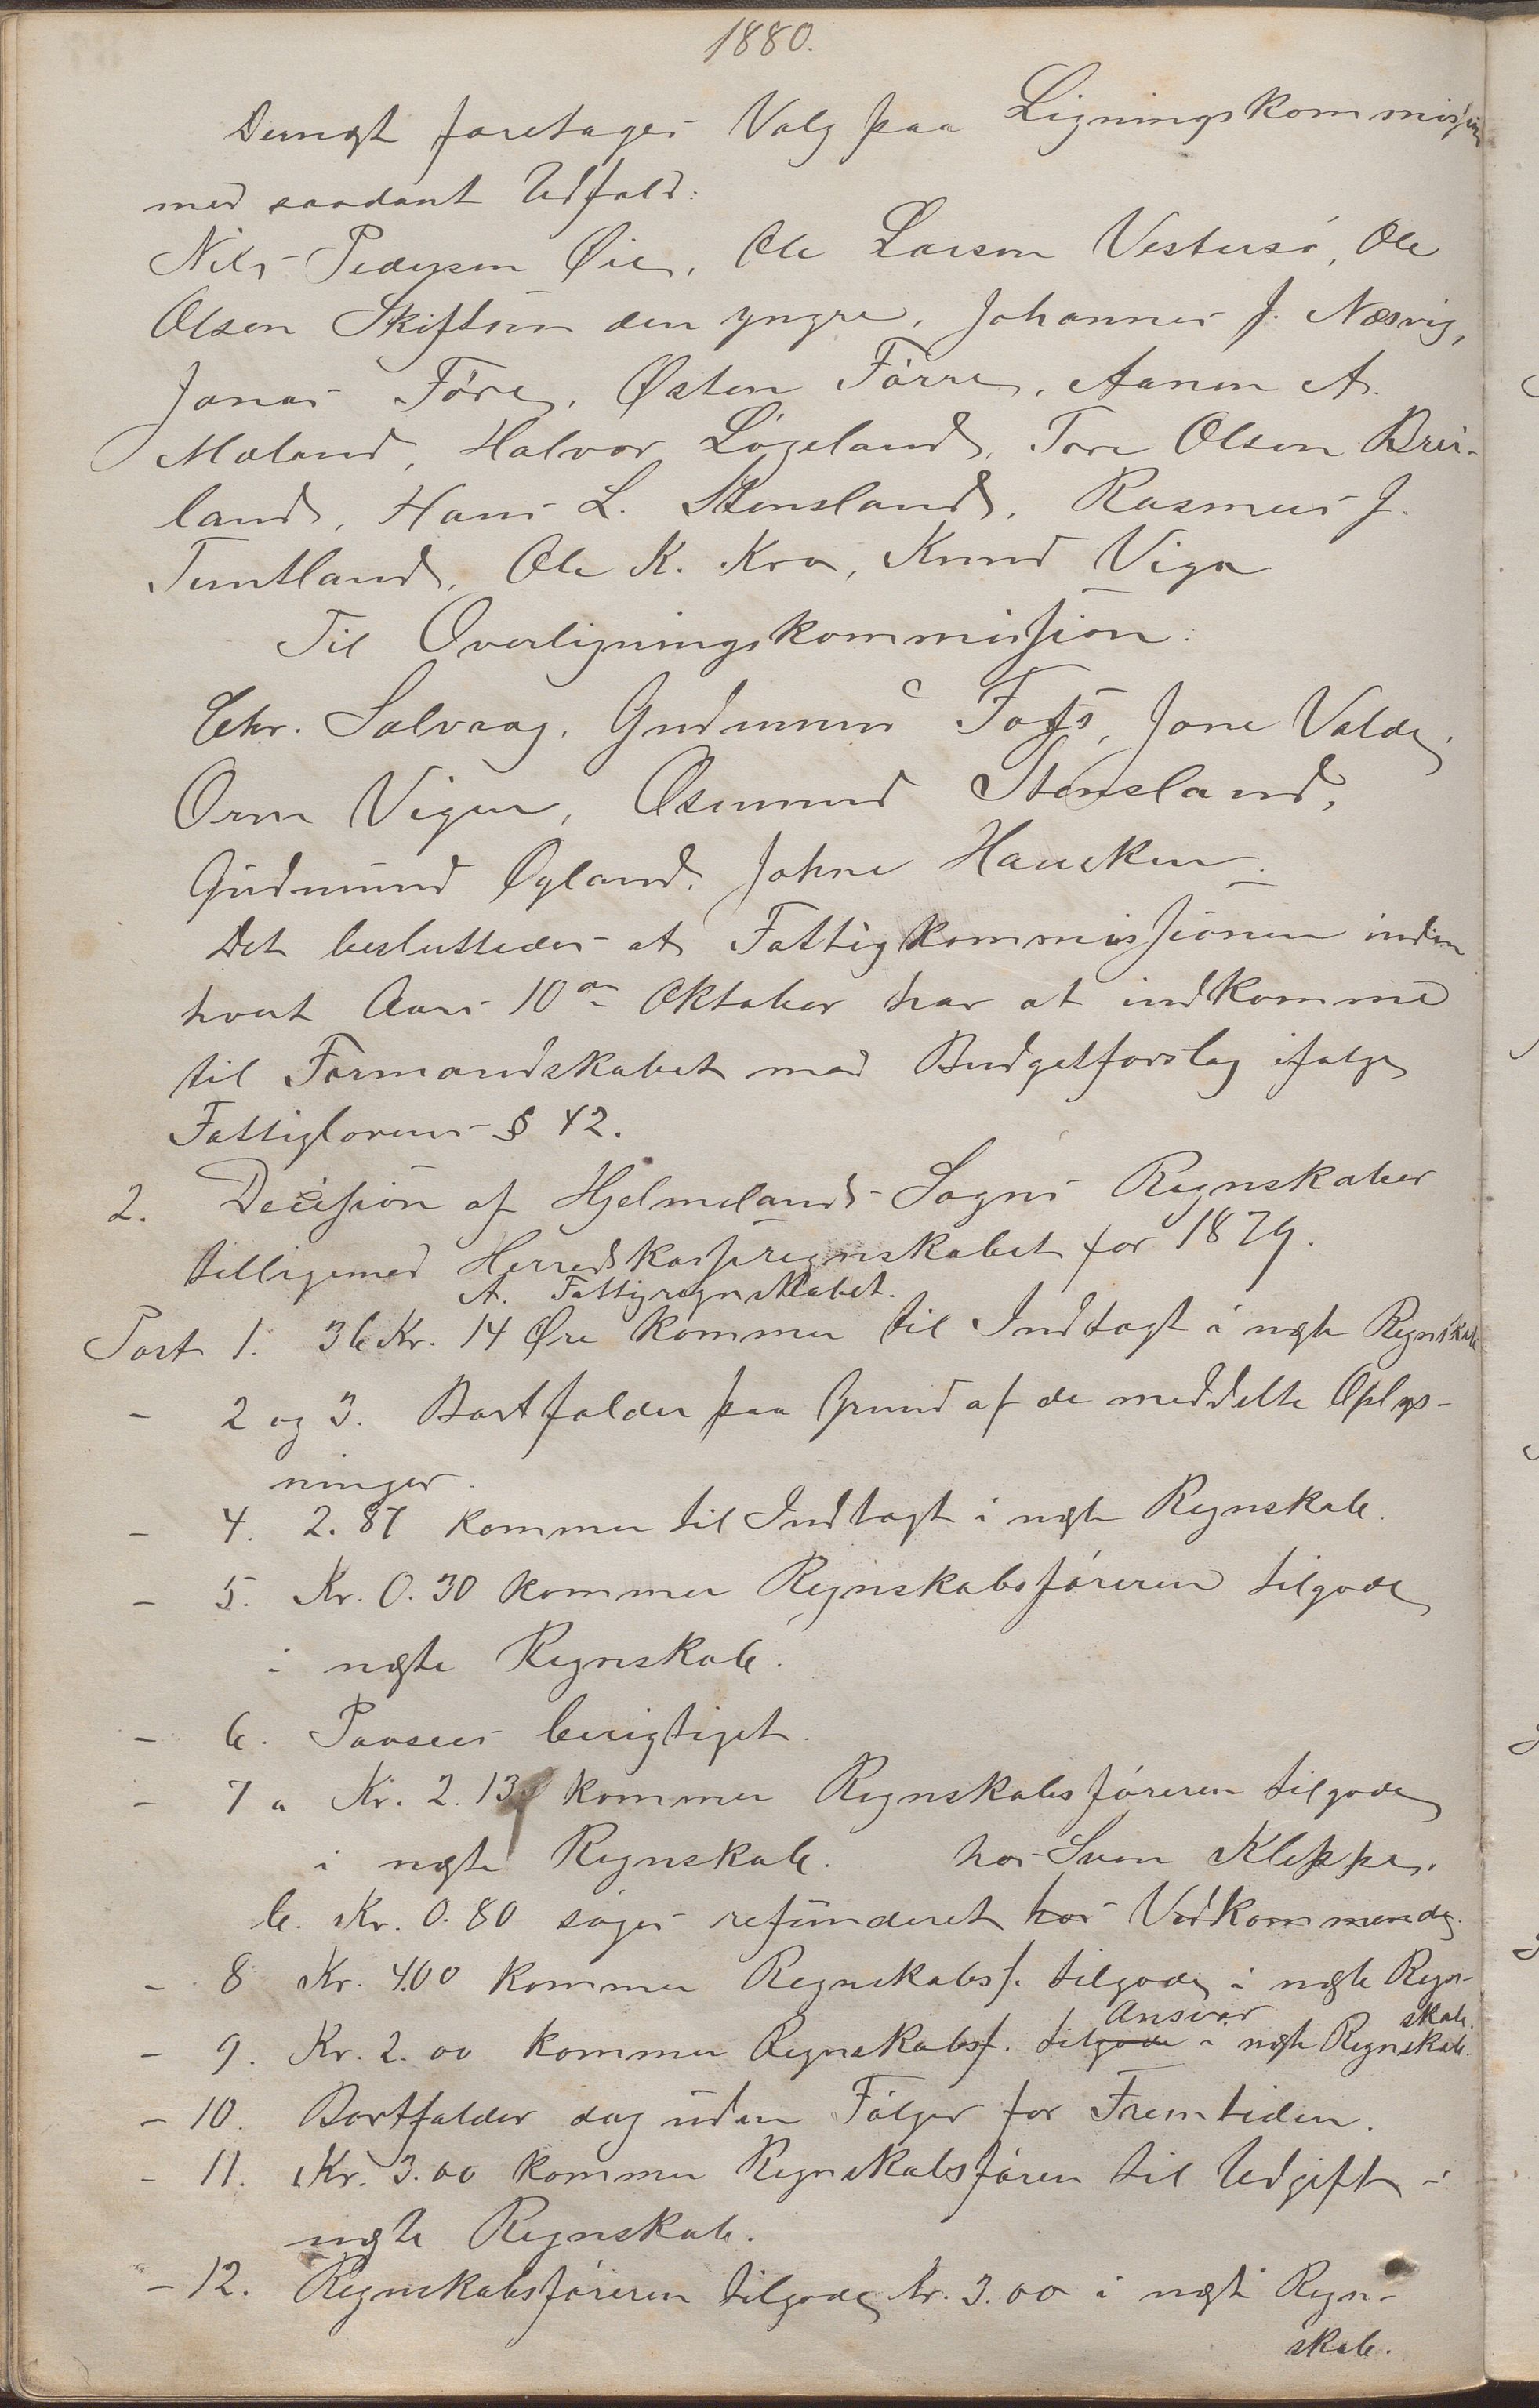 1880.
Dernæst foretages Valg paa Ligningskommission
med saadant Udfald:
Nils Pederson Øie, Ole Larson Vestersø, Ole
Olsen Skiftun den yngre, Johannes J. Næsvig,
Jonas Føre, Østen Førre, Aanen A.
Mæland, Halvor Løgeland, Tore Olsen Brei-
land, Hans L. Stensland, Rasmus J.
Tuntland, Ole K. Kro, Knud Viga
Til Overligningskommission:
Chr. Solvaag, Gudmund Fosså, Jone Valde,
Orm Vigen, Osmund Stensland,
Gudmund Øgland, Johne Hausken.
Det besluttedes at Fattigkommissionen inden
hvert Aars 10de Oktober har at indkomme
til Formandskabet med Budgetforslag ifølge
Fattiglovens § 42.
2. Decision af Hjelmelands Sogns Regnskaber
tilligemed Herredskasseregnskabet for 1879.
A. Fattigregnskabet.
Post 1. 36 Kr. 14 Øre kommer til Indtægt i næste Regnskab
- 2 og 3. Bortfalder paa Grund af de meddelte Oplys-
ninger.
- 4. 2.87 kommer til Indtægt i næste Regnskab.
- 5. Kr. 0.30 kommer Regnskabsføreren tilgode
i næste Regnskab.
- 6. Paasees berigtiget.
- 7 a Kr. 2.13 kommer Regnskabsføreren tilgode
i næste Regnskab. hos Sven Kleppe.
b. Kr. 0.80 søges refunderet hos Vedkommende.
- 8 Kr. 4.00 kommer Regnskabsf. tilgode i næste Regn-
skab.
Ansvar
- 9. Kr. 2.00 kommer Regnskabsf. tilgode i næste Regnskab.
- 10. Bortfalder dog uden Følger for Fremtiden.
- 11. Kr. 3.00 kommer Regnskabsføren til Udgift i
næste Regnskab.
- 12. Regnskabsføreren tilgode kr. 3.00 i næste Regn-
skab.